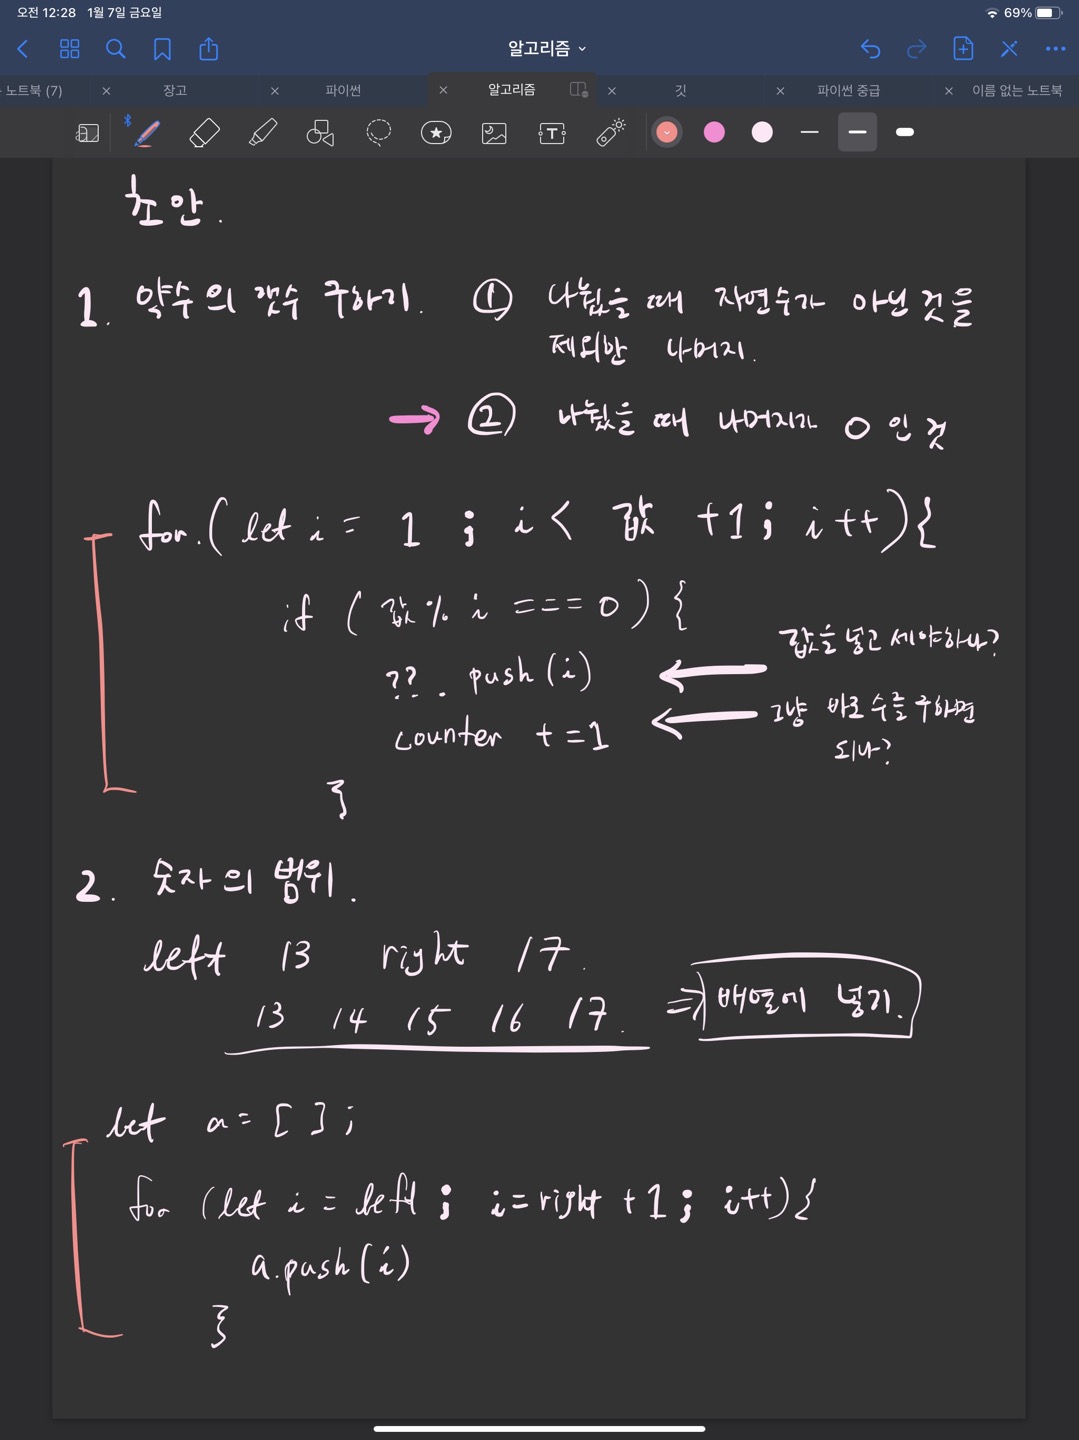 오전 12:28 1월 7일 금요일
69%
알고리즘
노트북 (7)
장고
파이썬
알고리즘
깃
파이썬 중급
이름 없는 노트북
초안.
1. 약수의 갯수 구하기. ① 나눴을 때 자연수가 아닌 것을
제외한 나머지.
→ ② 나눴을 때 나머지가 0 인 것
for.(let i = 1 ; i < 값 +1; i++){
if ( 값% i === 0 ) {
값을 넣고 세야하나?
??. push(i)
그냥 바로 수를 구하면
되나?
counter +=1
}
2. 숫자의 범위.
left 13 right 17.
13 14 15 16 17. ⇒ 배열에 넣기.
let a = [ ] ;
for (let i = left ; i=right +1 ; i++){
a.push(i)
}